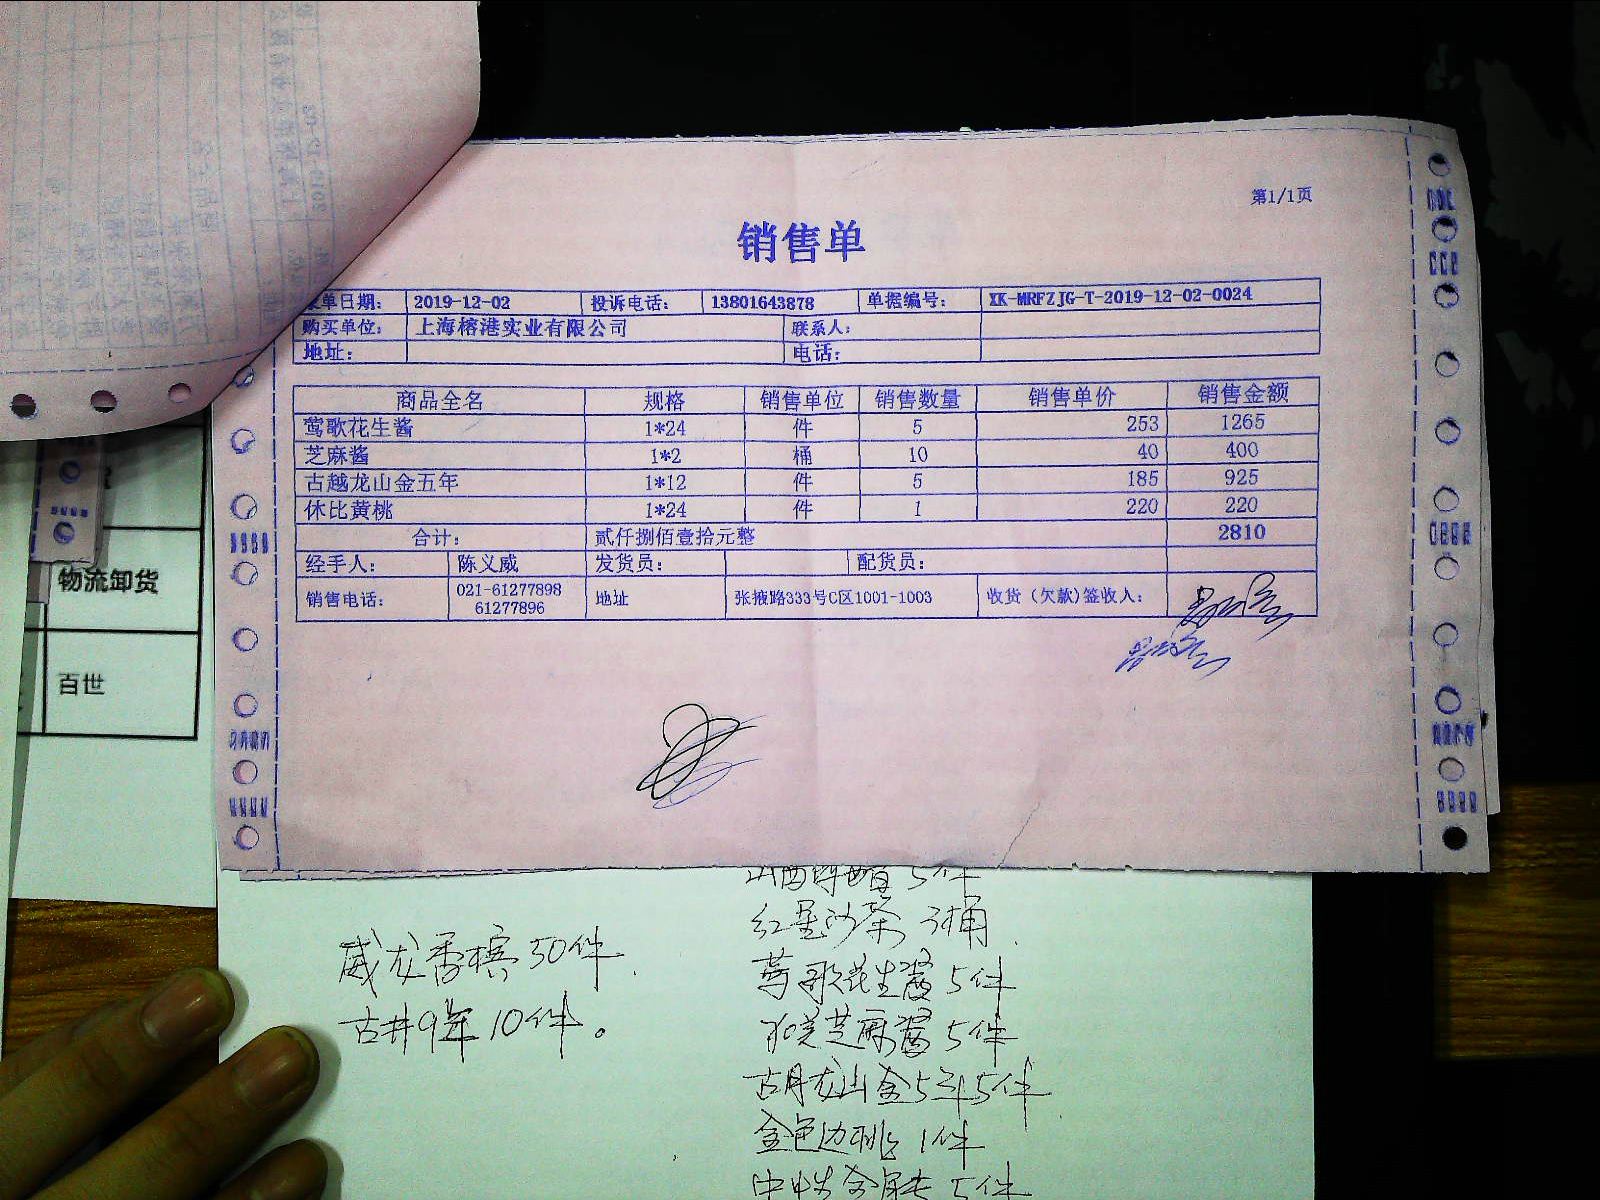 第1/1页
销售单
录单日期： 2019-12-02 投诉电话： 13801643878 单据编号： XK-MRFZJG-T-2019-12-02-0024
购买单位： 上海榕港实业有限公司 联系人：
地址： 电话：
商品全名 规格 销售单位 销售数量 销售单价 销售金额
莺歌花生酱 1*24 件 5 253 1265
芝麻酱 1*2 桶 10 40 400
古越龙山金五年 1*12 件 5 185 925
休比黄桃 1*24 件 1 220 220
合计： 贰仟捌佰壹拾元整 2810
经手人： 陈义威 发货员： 配货员：
销售电话： 021-61277898 61277896 地址 张掖路333号C区1001-1003 收货（欠款)签收人：
物流卸货
百世
威龙香槟50件.
古井9年10件。
山西陈醋5件
红星沙茶3桶.
莺歌花生酱5件
芝麻酱5件
古月龙山金5年5件
金色边桃1件
5件